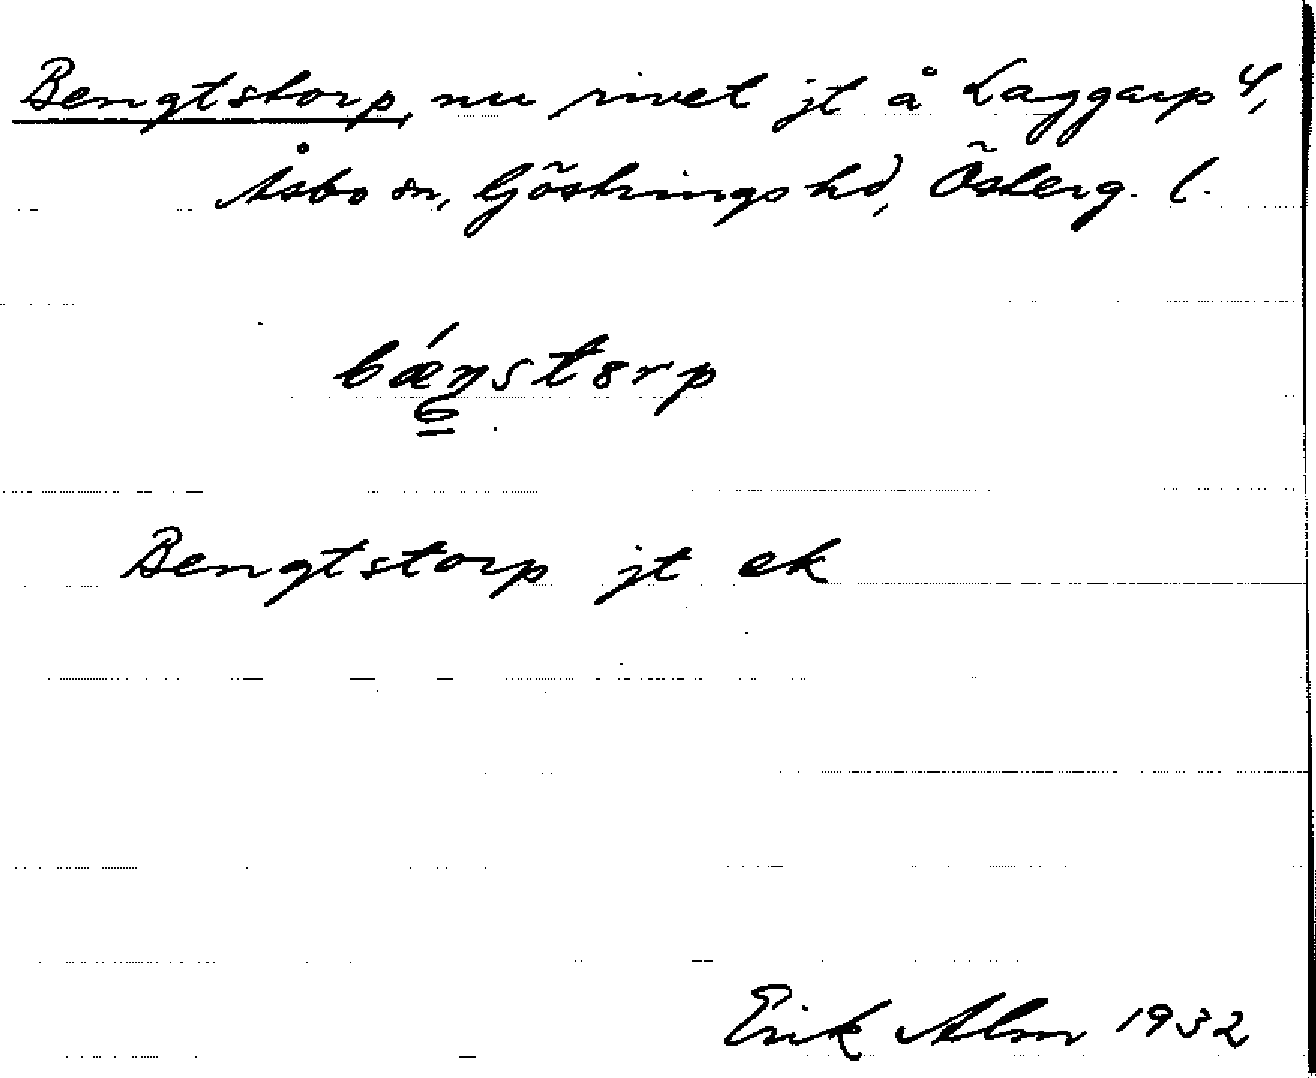 Bengtstorp, nu rivet jt å Laggarp 4,
Åsbo sn, Göstrings hd, Österg. l.
bǽŋstɷrp
Bengtstorp jt ek
Erik Alm 1932